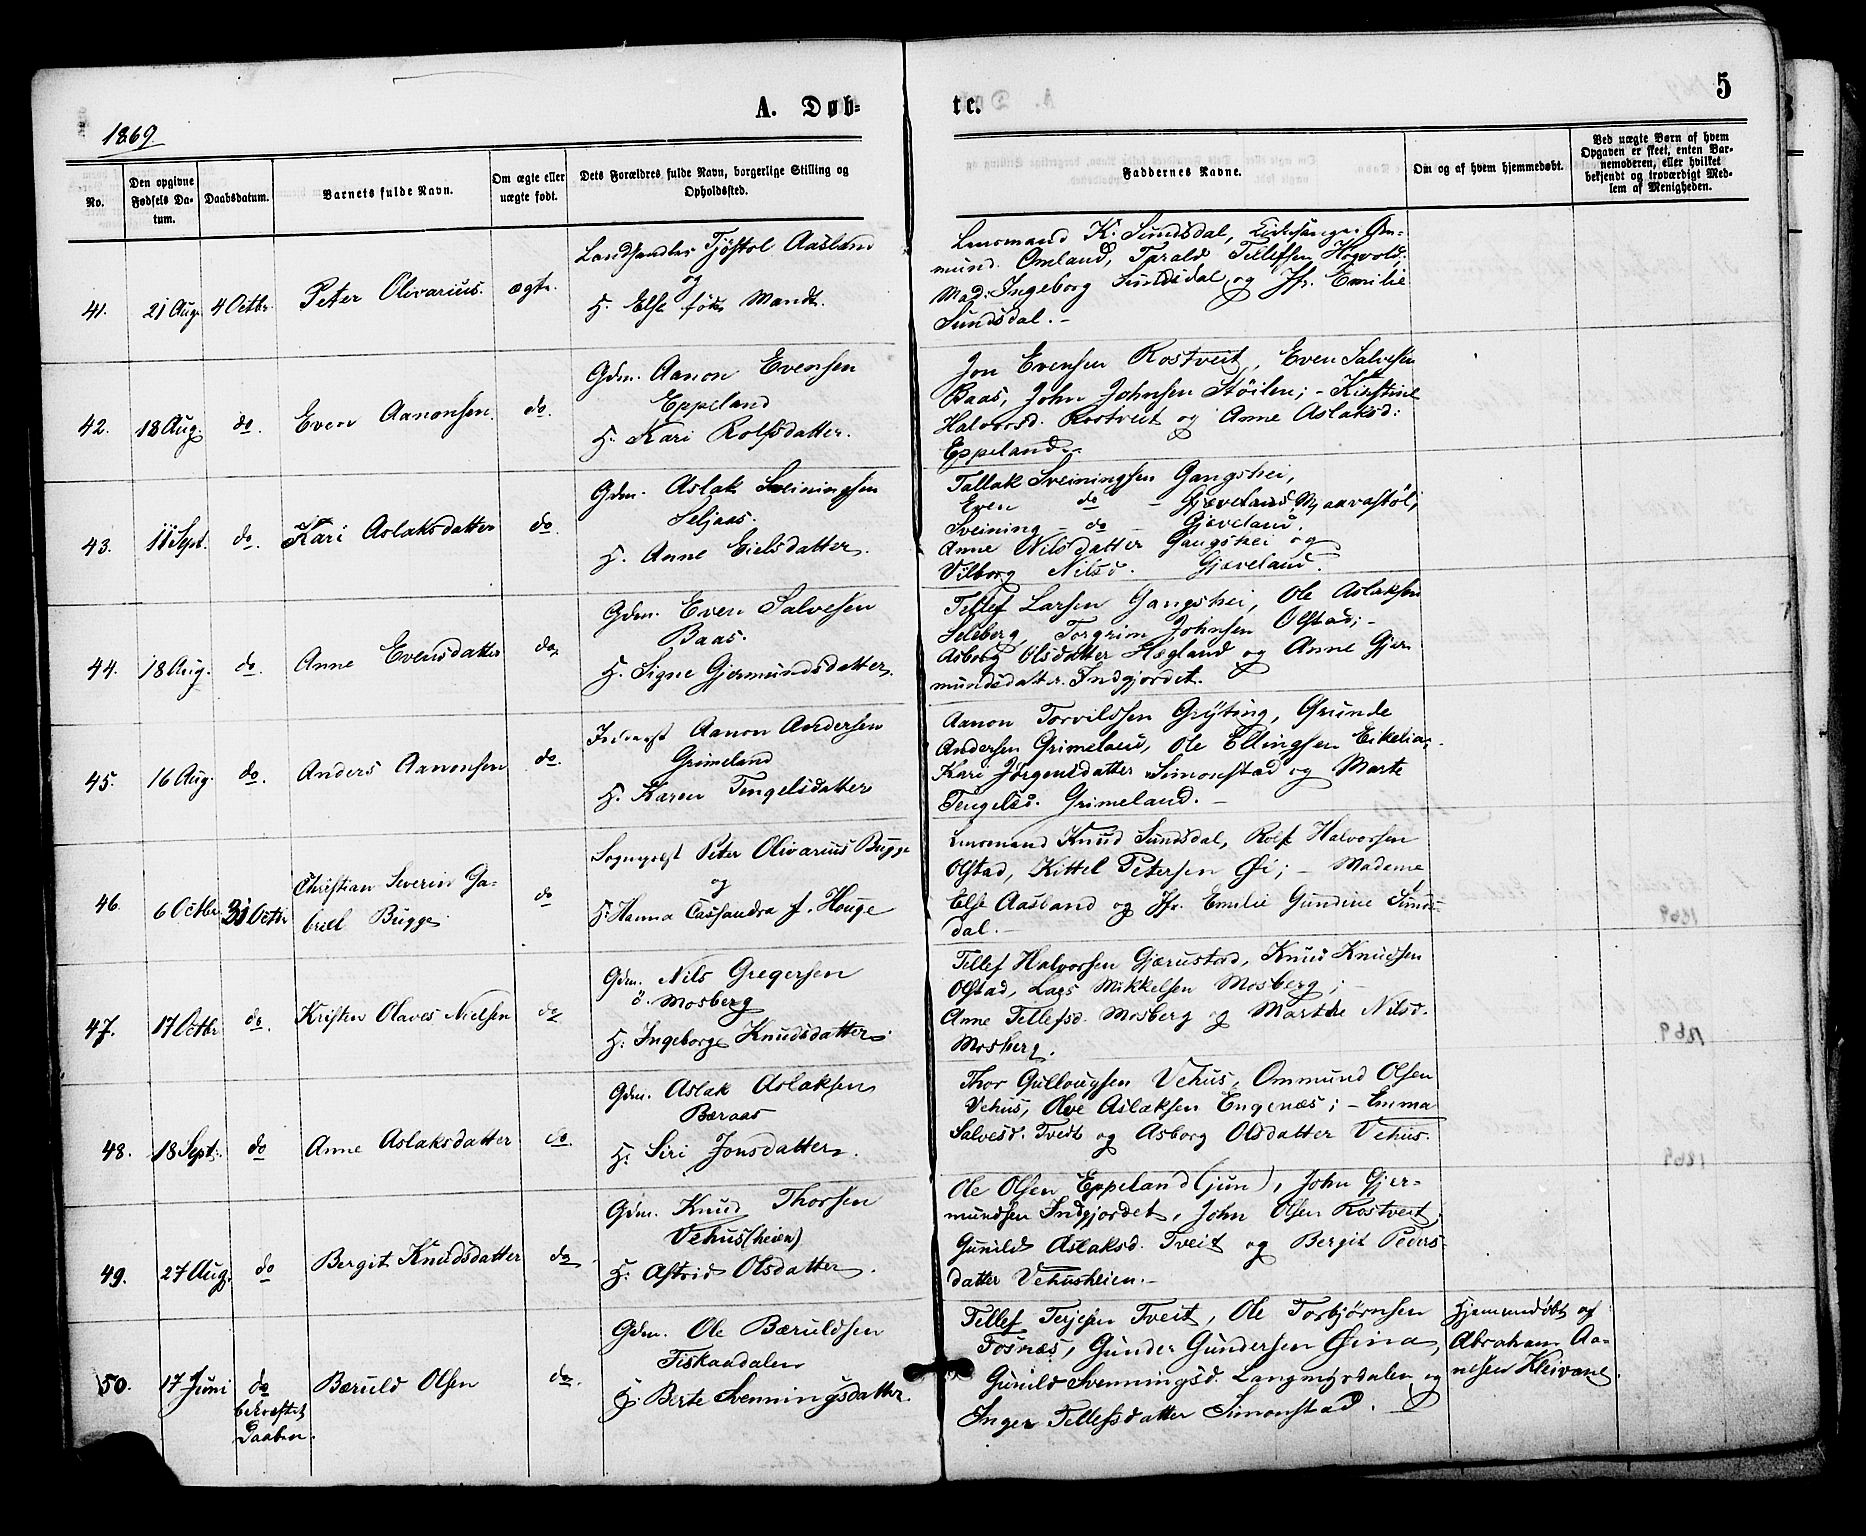 A. Døb-
te.
5
1869.
No.
Den opgivne Fødsels Da-
tum.
Daabsdatum.
Barnets fulde Navn.
Om ægte eller
uægte født.
Dets Forældres fulde Navn, borgerlige Stilling og
Opholdssted.
Faddernes Navne.
Om og af hvem hjemmedøbt.
Ved uægte Børn af hvem
Opgaven er skeet, enten Bar-
nemoderen, eller hvilket
bekjendt og troværdigt Med-
lem af Menigheden.
41.
21 Aug.
4 Octbr.
Peter Olivarius.
ægte.
Landhandler Tjøstol Aasland
og
H. Else født Mandt.
Lensmand K. Sundsdal, Kirkesanger Om-
mund Omland, Tarald Tellefsen Høgvold.
Mad. Ingeborg Sundsdal og Jfr. Emilie
Sundsdal.-
42.
18 Aug.
do.
Even Aanonsen.
do.
Gdm. Aanon Evensen
Eppeland
H. Kari Rolfsdatter.
Jon Evensen Rostveit, Even Salvesen
Baas, John Johnsen Støilen; - Kirstine
Halvorsd. Rostveit og Anne Aslaksd:
Eppeland.-
43.
11 Sept.
do.
Kari Aslaksdatter
do.
Gdm. Aslak Sveiningsen
Seljaas.
H. Anne Eielsdatter.
Tallak Sveiningsen Gangshei,
Even do - Gjæveland, Myaavastøl;
Sveining - do - Gjæveland.
Anne Nilsdatter Gangshei og
Vilborg Nilsd. Gjæveland.
44.
18 Aug.
do.
Anne Evensdatter
do.
Gdm. Even Salvesen
Baas.
H. Signe Gjermundsdatter.
Tellef Larsen Gangshei, Ole Aslaksen
Seleberg, Torgrim Johnsen Olstad; -
Asborg Olsdatter Hægland og Anne Gjer-
mundsdatter Indgjordet.
45.
16 Aug.
do.
Anders Aanonsen
do.
Inderst Aanon Andersen
Grimeland
H. Karen Tengelsdatter
Aanon Torvildsen Gryting, Grunde
Andersen Grimeland, Ole Ellingsen Eikelia,
Kari Jørgensdatter Simonstad og Marte
Tengelsd. Grimeland. -
46.
6 Octbr
31 Octbr
Christian Severin Ga-
briel Bugge.
do
Sogneprest Peter Olivarius Bugge
og
H. Hanna Cassandra f. Houge
Lensmand Knud Sundsdal, Rolf Halvorsen
Olstad, Kittel Petersen Øi; - Madame
Else Aasland og Jfr. Emilie Gundine Sunds-
dal.-
47.
17 Octbr
do.
Kristen Olaves Nielsen
do
Gdm. Nils Gregersen
ö. Mosberg
H. Ingeborg Knudsdatter.
Tellef Halvorsen Gjærustad, Knud Knudsen
Olstad, Lars Mikkelsen Mosberg; -
Anne Tellefsd. Mosberg og Marthe Nilsd.
Mosberg.
48.
18 Sept.
do
Anne Aslaksdatter
do.
Gdm. Aslak Aslaksen
Bæraas
H. Siri Jonsdatter.
Thor Gullougsen Vehus, Ommund Olsen
Vehus, Olve Aslaksen Engenæs; - Emma
Salvesd. Tveit og Asborg Olsdatter Vehus.
49.
27 Aug.
do
Bergit Knudsdatter
do.
Gdm. Knud Thorsen
Vehus (heien)
H. Astrid Olsdatter.
Ole Olsen Eppeland (jun), John Gjer-
mundsen Indgjordet, John Olsen Rostveit,
Gunild Aslaksd. Tveit og Bergit Peders-
datter Vehusheien.-
50.
17 Juni
do
bekræftet
Daaben.
Bæruld Olsen
do.
Gdm. Ole Bæruldsen
Fiskaadalen
H. Berte Svenningsdatter.
Tellef Terjesen Tveit, Ole Torbjørnsen
Fosnæs, Gunder Gundersen Øina,
Gunild Svenningsd. Langmyrdalen og
Inger Tellefsdatter Simonstad.
Hjemmedøbt af
Abraham Aa-
nesen Kleivene.